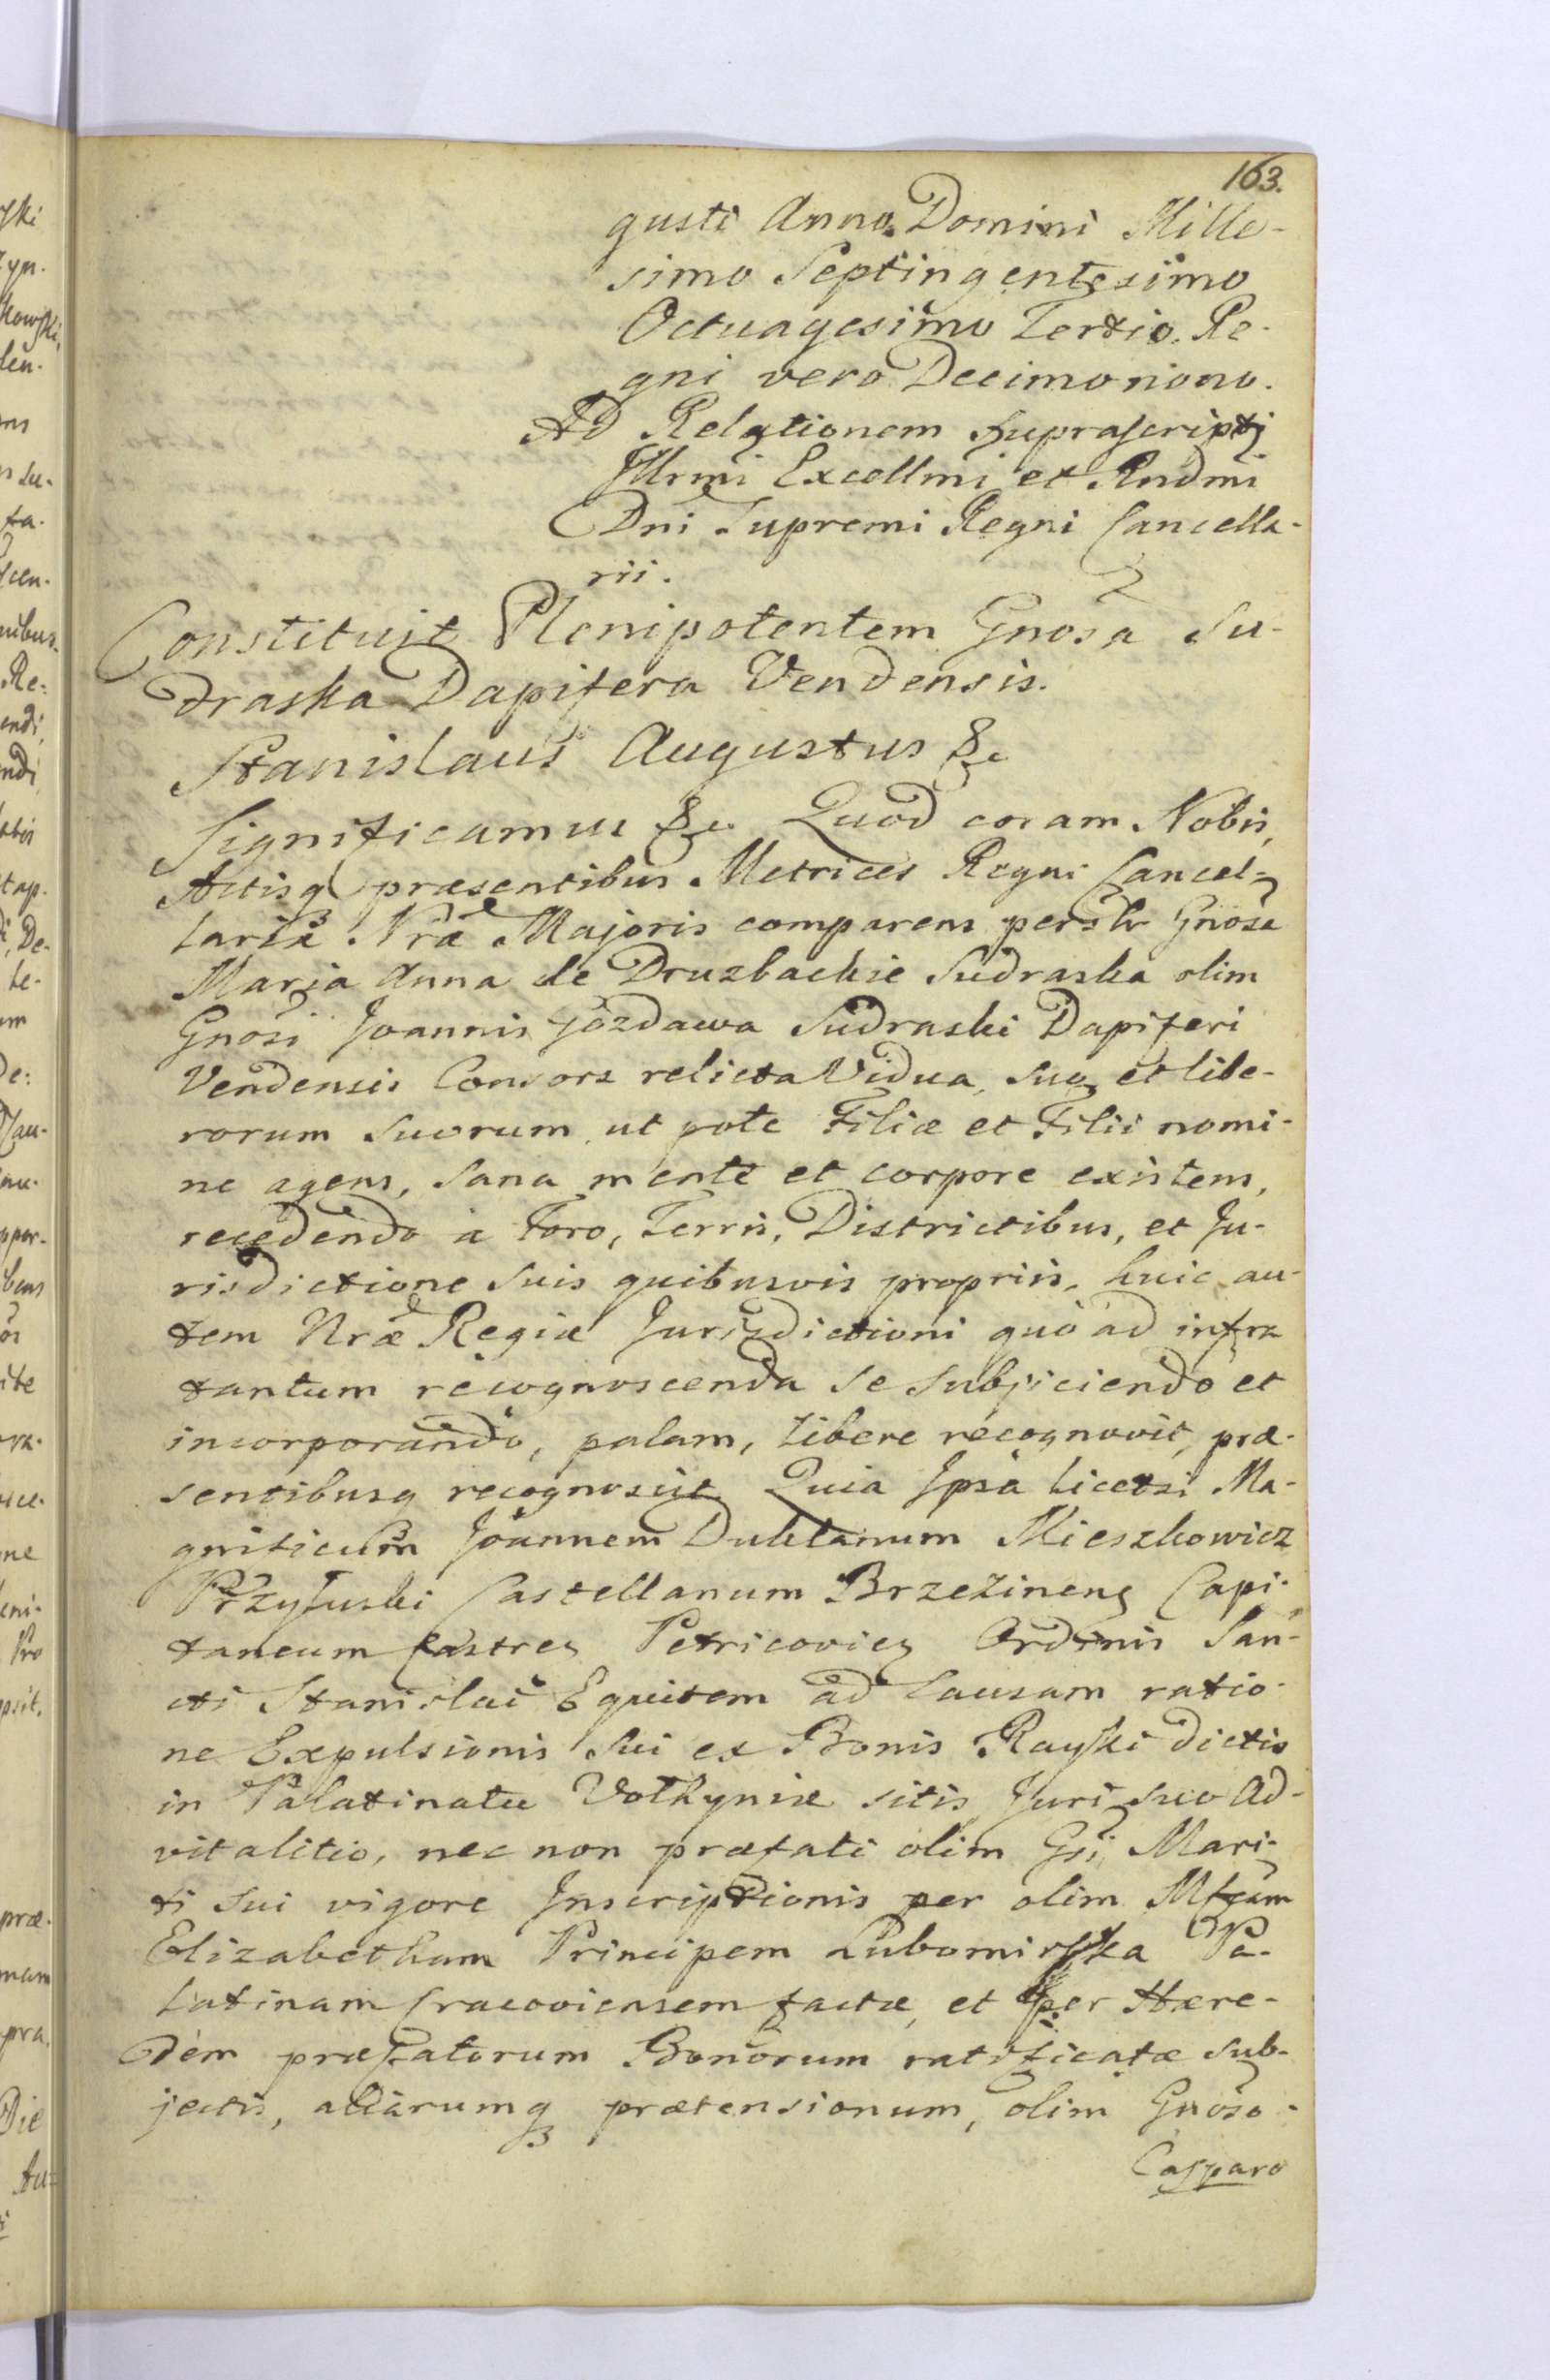 163.
gusti Anno Domini Mille-
simo Septingentesimo
Octuagesimo Tertio. Re-
gni vero Decimonono.
Ad Relationem suprascripti
Illrmi Excellmi et Rndmi
Dni Supremi Regni Cancella-
rii.
Constituit Plenipotentem Gnosa Su-
draska Dapifera Vendensis.
Stanislaus Augustus &c
Significamus &c. Quod coram Nobis,
Actisq præsentibus Metrices Regni Cancel-
lariæ Nræ Majoris comparens persłr Gnosa
Maria Anna de Druzbackie Sudraska olim
Gnosi Joannis Gozdawa Sudraski Dapiferi
Vendensis Consors relicta Vidua, suo et libe-
rorum suorum, ut pote Filiæ et Filii nomi-
ne agens, sana mente et corpore existens,
recedendo a Foro, Terris, Districtibus, et Ju-
risdictione suis quibusvis propriis, huic au-
tem Nræ Regiæ Jurisdictioni quo ad infra
tantum recognoscenda se subjiciendo et
incorporando, palam, libere recognovit, præ-
sentibusq recognoscit. Quia Ipsa licetsi Ma-
gnificum Joannem Duklanum Mieszkowicz
Przyłuski Castellanum Brzezinens Capi-
taneum Castren Petricovien Ordinis San-
cti Stanislai Equitem ad Causam ratio-
ne Expulsionis sui ex Bonis Rayski dictis
in Palatinatu Volhyniæ sitis Juri suo Ad-
vitalitio, nec non præfati olim Gsi Mari-
ti sui vigore Inscriptionis per olim Mfcam
Elizabetham Principem Lubomirska Pa-
latinam Cracoviensem factæ, et per Hære-
dem præfatorum Bonorum ratificatæ sub-
jectis, aliarumq prætensionum, olim Gnoso
Casparo